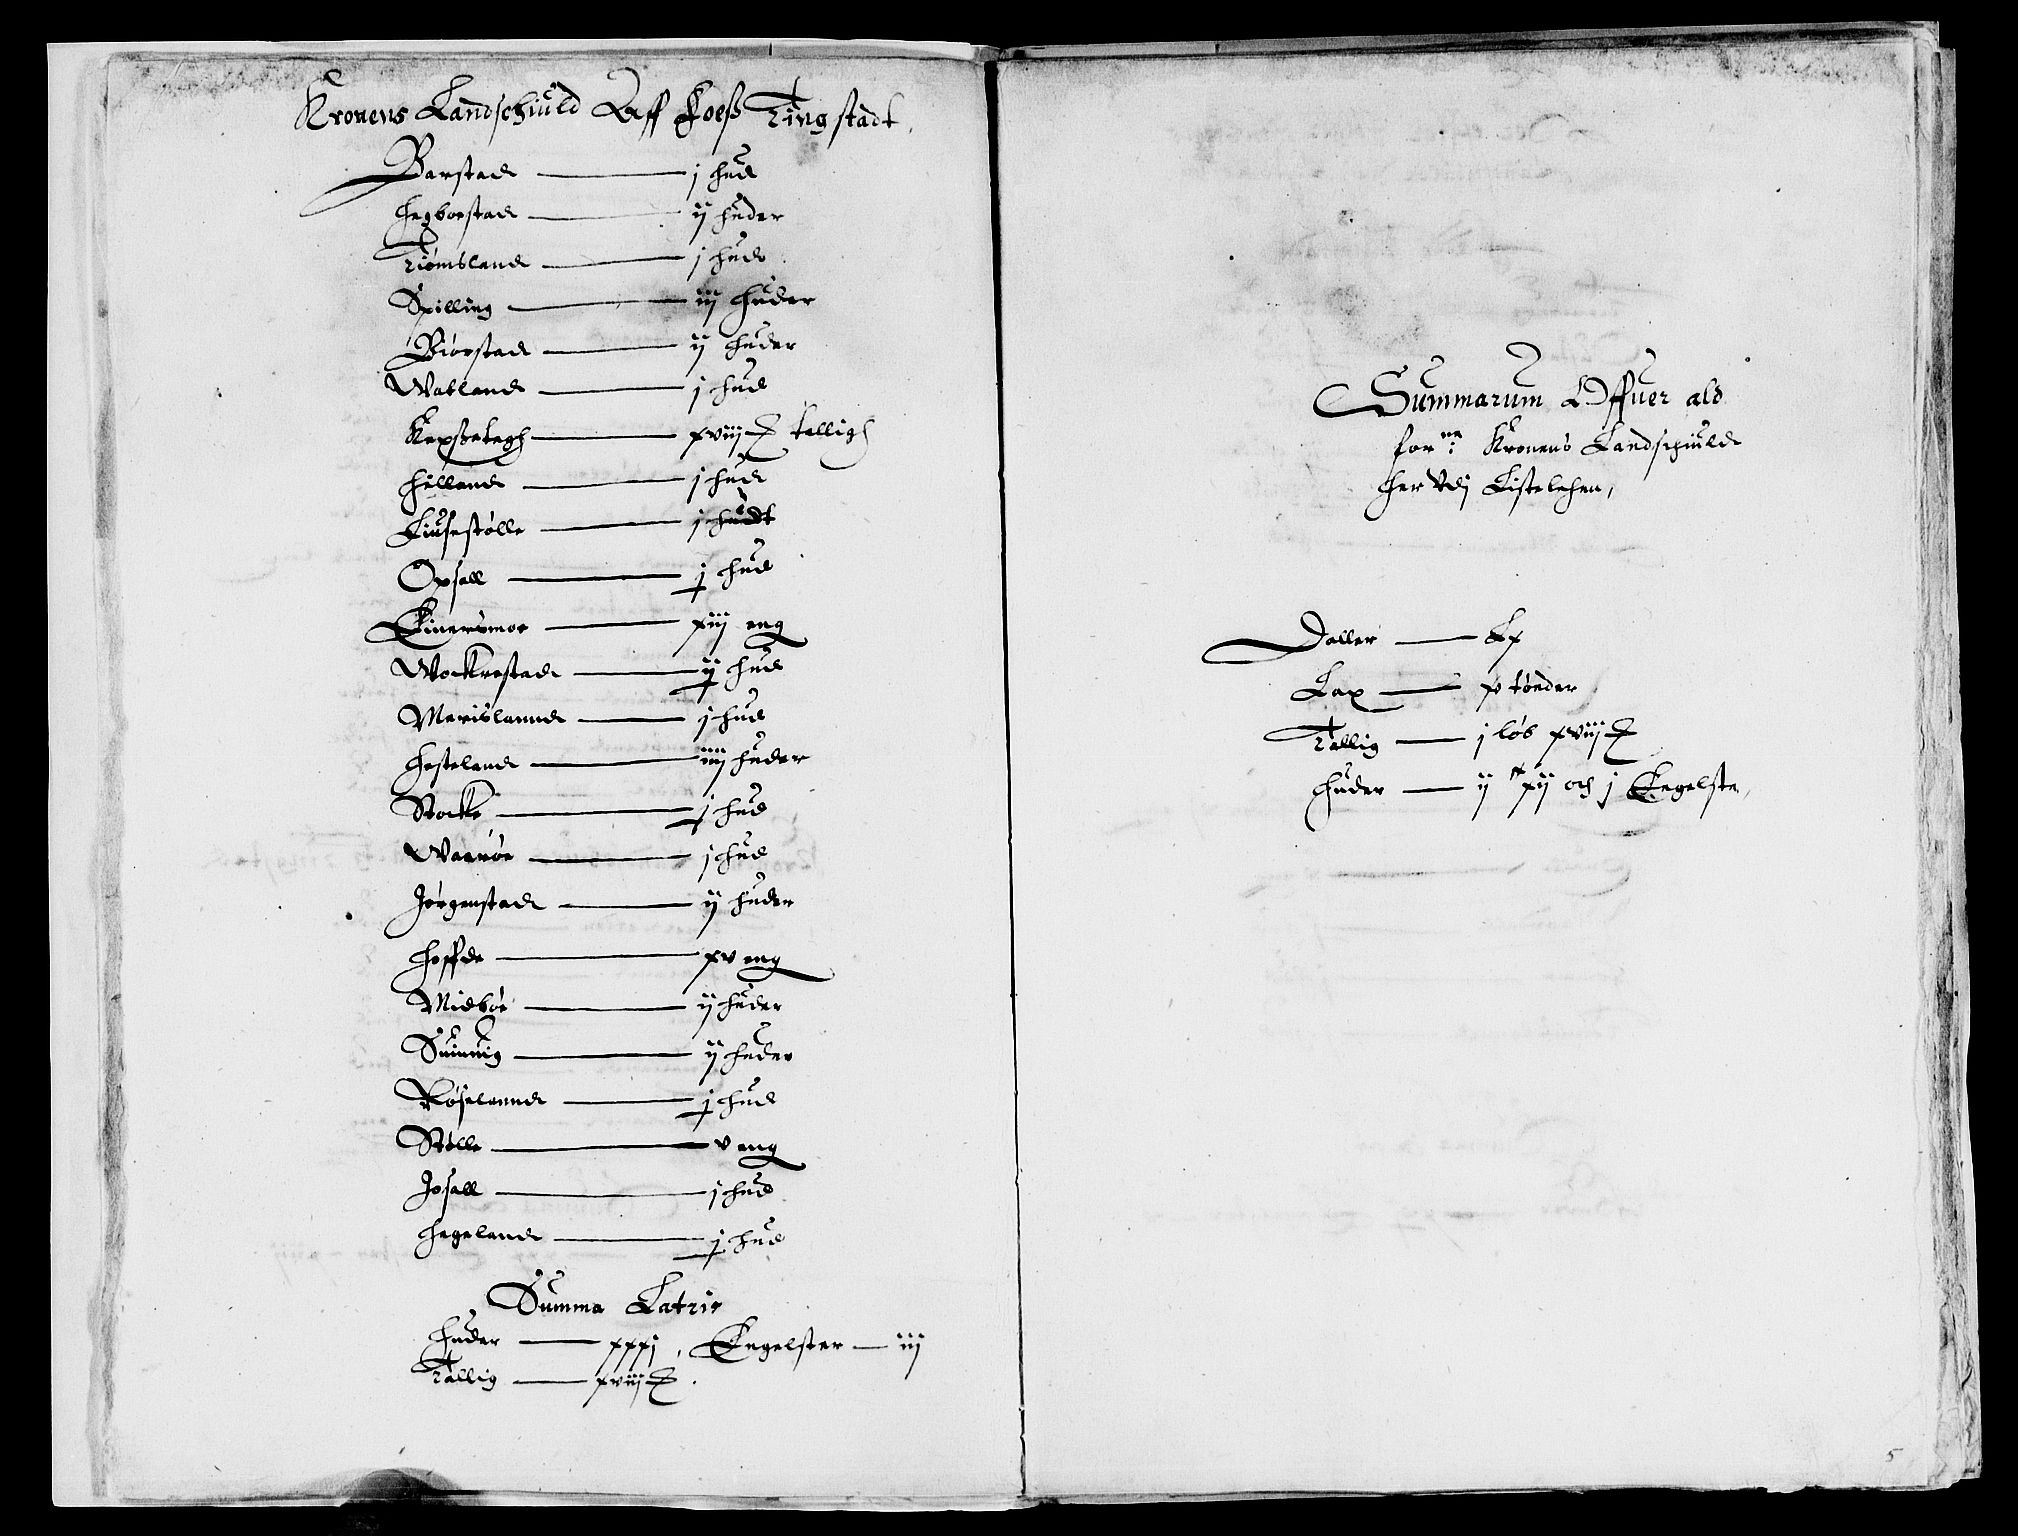 Kronens Landschiuld Aff Foeß Tingstadt,
Barstad — j hud
Hegboestad — ij huder
Tiømsland — j hud
Spilling — iij huder
Biørstad — ij huder
Watland — j hud
— xviij tallig
Helland — j hud
Liusestølle — j hudt
Opsall — j hud
Einersmoe — xiij eng
Wockrestad — ij hud
Merislannd — j hud
Hesteland — iiij huder
Stocke — j hud
Waarøe — j hud
Jørgenstad — ij huder
Hoffde — xv eng
Midbøe — ij huder
Suinnig — ij huder
Røselannd — j hud
Stølle — v eng
Josall — j hud
Hegeland — j hud
Summa Latris
Huder — xxxj, Engelster — iij
Tallig — xviij
Summarum Offuer ald
for ne: Kronens Landschiuld
her vdj Listelehen,
Daller — Lx
Lax — xv tønder
Tallig — j løb xviij
Huder — ij xij och j Engelste,
5